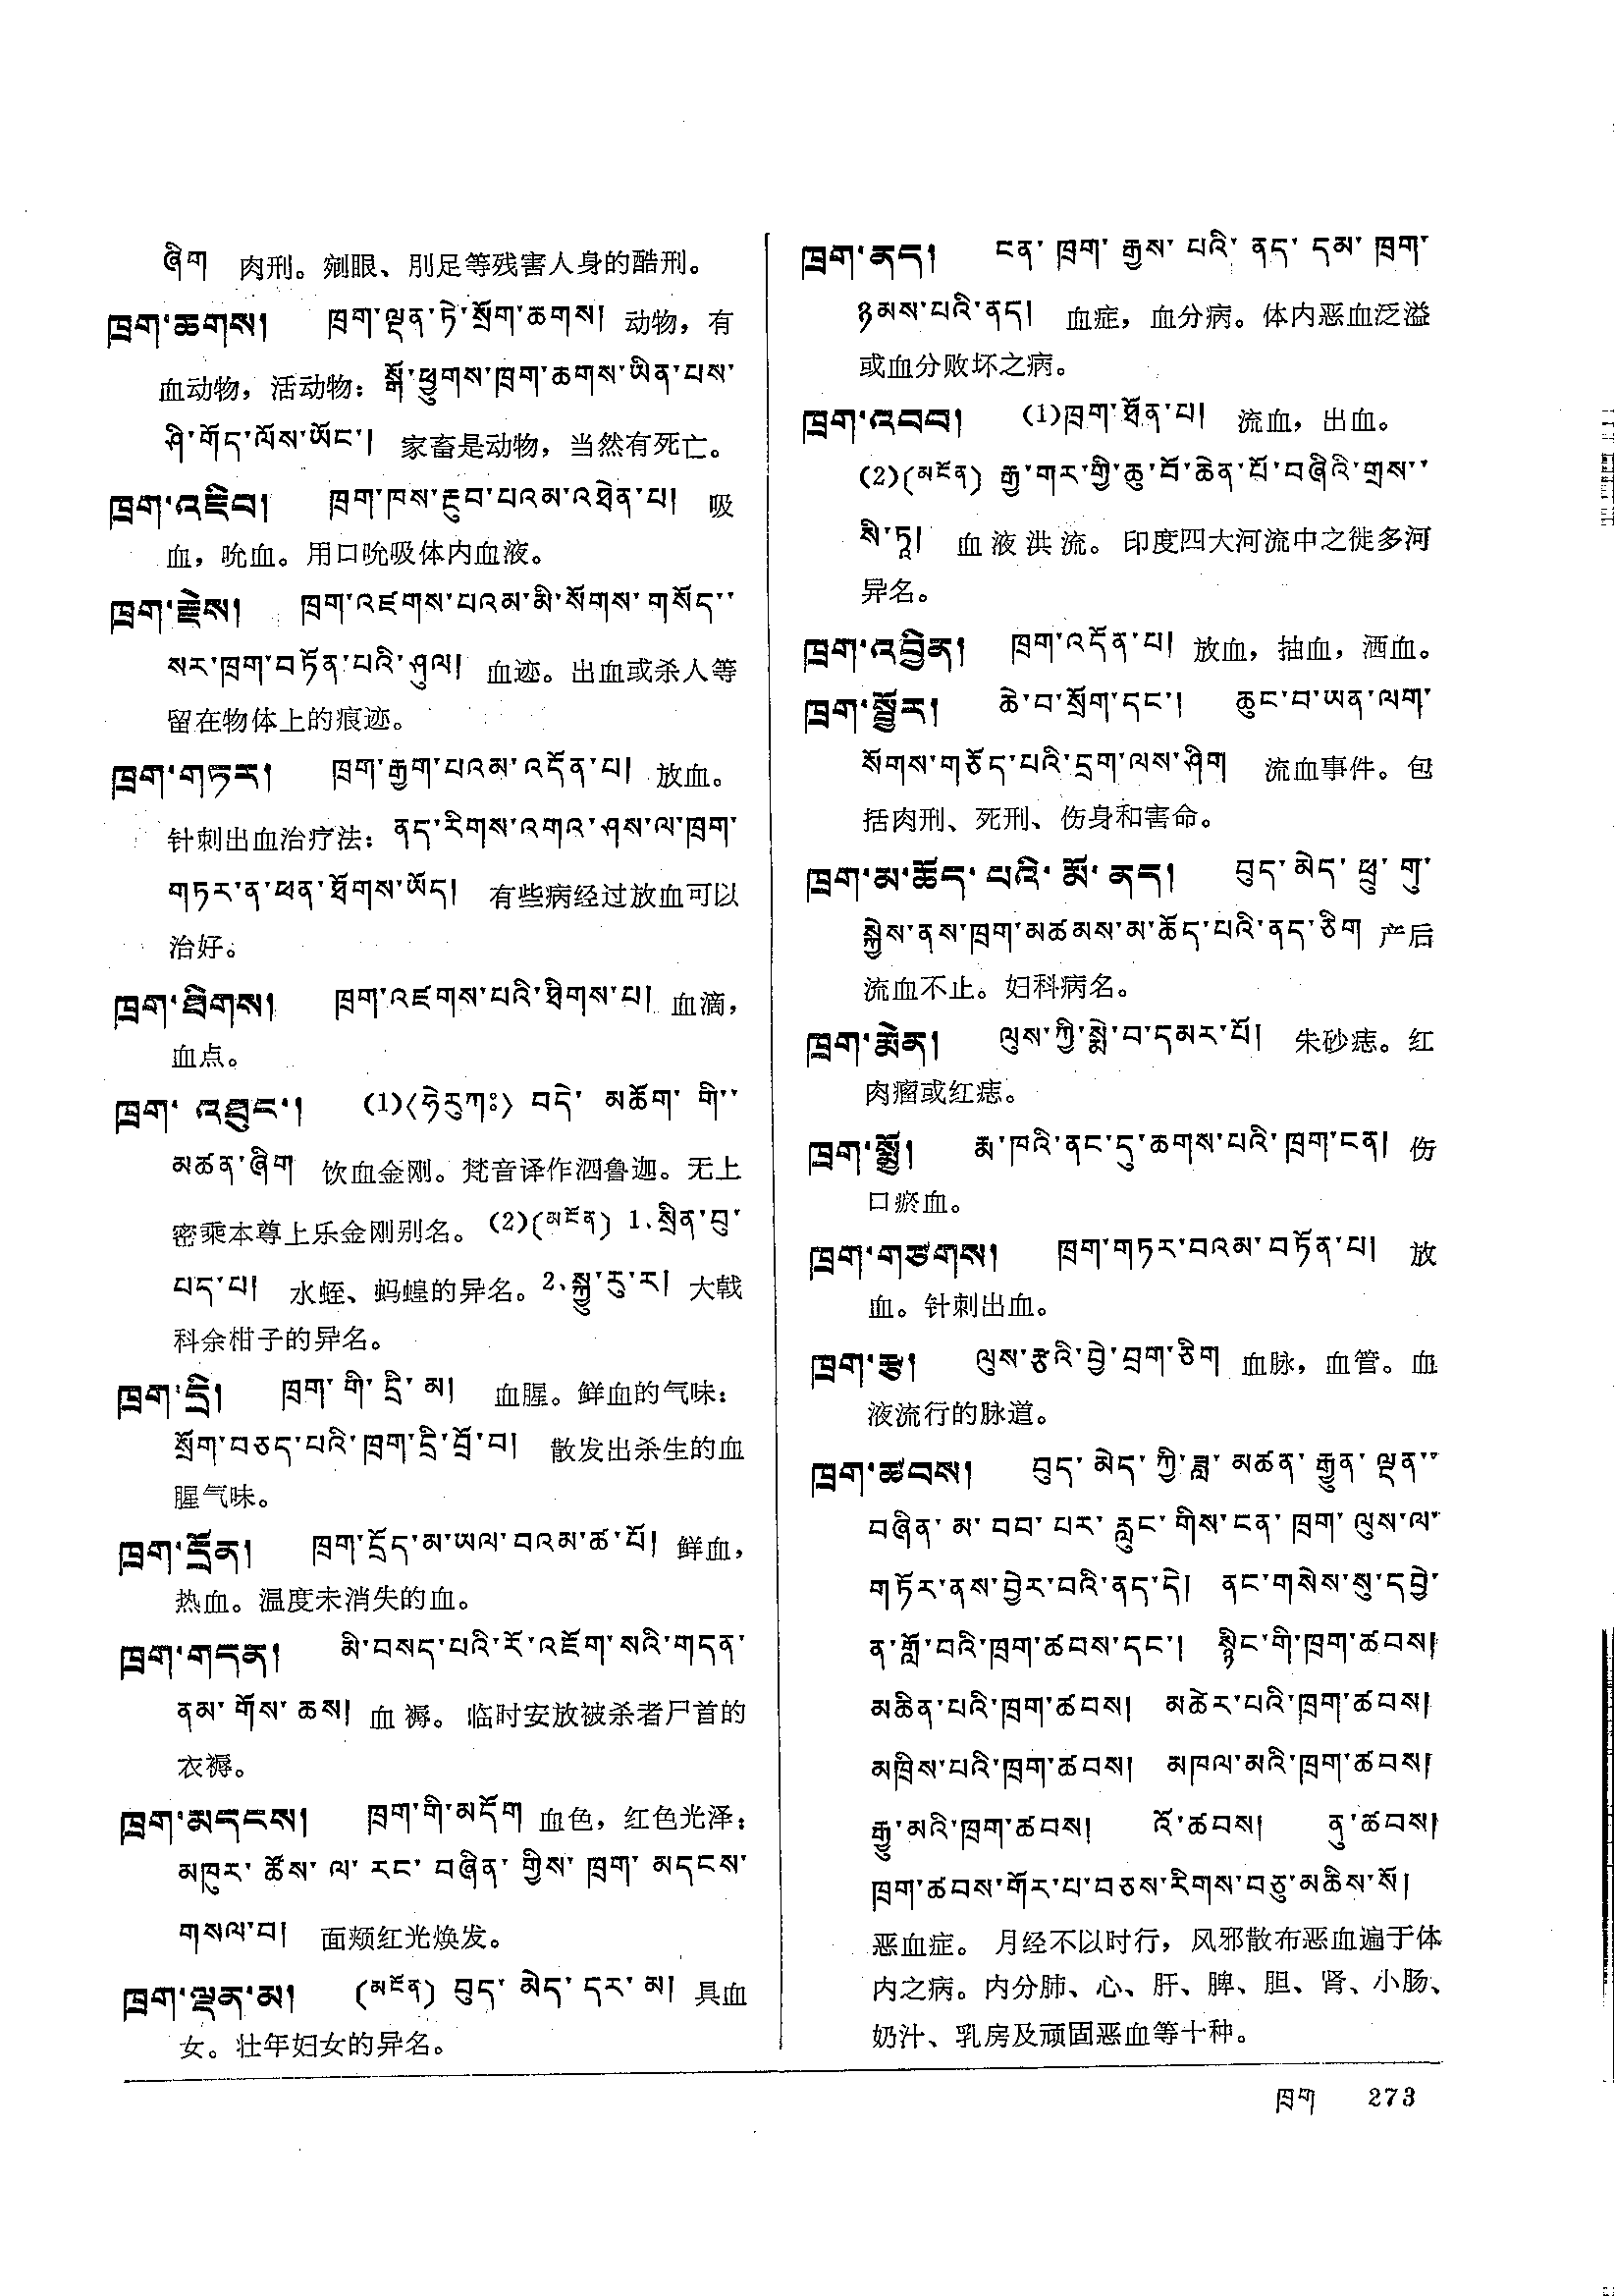 ཞིག 肉刑。剜眼、刖足等残害人身的酷刑。
ཁྲག་ཆགས། ཁྲག་ལྡན་ཏེ་སྲོག་ཆགས། 动物，有
血动物，活动物：སྒོ་ཕྱུགས་ཁྲག་ཆགས་ཡིན་པས་
ཤི་གོད་ལོས་ཡོང་། 家畜是动物，当然有死亡。
ཁྲག་འཇིབ། ཁྲག་ཁས་རྔུབ་པའམ་འཐེན་པ། 吸
血，吮血。用口吮吸体内血液。
ཁྲག་རྗེས། ཁྲག་འཛགས་པའམ་མི་སོགས་གསོད་་
སར་ཁྲག་བཏོན་པའི་ཤུལ། 血迹。出血或杀人等
留在物体上的痕迹。
ཁྲག་གཏར། ཁྲག་རྒྱག་པའམ་འདོན་པ། 放血。
针刺出血治疗法：ནད་རིགས་འགའ་ཤས་ལ་ཁྲག་
གཏར་ན་ཕན་ཐོགས་ཡོད། 有些病经过放血可以
治好。
ཁྲག་ཐིགས། ཁྲག་འཛགས་པའི་ཐིགས་པ། 血滴，
血点。
ཁྲག་ འཐུང་། (1)〈ཧེརུཀཿ〉 བདེ་ མཆོག་ གི་་
མཚན་ཞིག 饮血金刚。梵音译作泗鲁迦。无上
密乘本尊上乐金刚别名。(2)(མངོན) 1.སྲིན་བུ་
པད་པ། 水蛭、蚂蝗的异名。2.སྐྱུ་རུ་ར། 大戟
科余柑子的异名。
ཁྲག་དྲི། ཁྲག་ གི་ དྲི་ མ། 血腥。鲜血的气味：
སྲོག་བཅད་པའི་ཁྲག་དྲི་བྲོ་བ། 散发出杀生的血
腥气味。
ཁྲག་དྲོན། ཁྲག་དྲོད་མ་ཡལ་བའམ་ཚ་པོ། 鲜血，
热血。温度未消失的血。
ཁྲག་གདན། མི་བསད་པའི་རོ་འཇོག་སའི་གདན་
ནམ་ གོས་ ཆས། 血褥。临时安放被杀者尸首的
衣褥。
ཁྲག་མདངས། ཁྲག་གི་མདོག 血色，红色光泽：
མཁུར་ ཚོས་ ལ་ རང་ བཞིན་ གྱིས་ ཁྲག་ མདངས་
གསལ་བ། 面颊红光焕发。
ཁྲག་ལྡན་མ། (མངོན) བུད་ མེད་ དར་ མ། 具血
女。壮年妇女的异名。
ཁྲག་ནད། ངན་ ཁྲག་ རྒྱས་ པའི་ ནད་ དམ་ ཁྲག་
ཉམས་པའི་ནད། 血症，血分病。体内恶血泛溢
或血分败坏之病。
ཁྲག་འབབ། (1)ཁྲག་ཐོན་པ། 流血，出血。
(2)(མངོན) རྒྱ་གར་གྱི་ཆུ་བོ་ཆེན་པོ་བཞིའི་གྲས་་
སི་ཏཱ། 血液洪流。印度四大河流中之徙多河
异名。
ཁྲག་འབྱིན། ཁྲག་འདོན་པ། 放血，抽血，洒血。
ཁྲག་སྦྱོར། ཆེ་བ་སྲོག་དང་། ཆུང་བ་ཡན་ལག་
སོགས་གཅོད་པའི་དྲག་ལས་ཤིག 流血事件。包
括肉刑、死刑、伤身和害命。
ཁྲག་མ་ཆོད་པའི་མོ་ནད། བུད་ མེད་ ཕྲུ་ གུ་
སྐྱེས་ནས་ཁྲག་མཚམས་མ་ཆོད་པའི་ནད་ཅིག 产后
流血不止。妇科病名。
ཁྲག་རྨེན། ལུས་ཀྱི་སྨེ་བ་དམར་པོ། 朱砂痣。红
肉瘤或红痣。
ཁྲག་སྨྱོ། རྨ་ཁའི་ནང་དུ་ཆགས་པའི་ཁྲག་ངན། 伤
口瘀血。
ཁྲག་གཙགས། ཁྲག་གཏར་བའམ་བཏོན་པ། 放
血。针刺出血。
ཁྲག་རྩ། ལུས་རྩའི་བྱེ་བྲག་ཅིག 血脉，血管。血
液流行的脉道。
ཁྲག་ཚབས། བུད་ མེད་ ཀྱི་ ཟླ་ མཚན་ རྒྱུན་ ལྡན་་
བཞིན་ མ་ བབ་ པར་ རླུང་ གིས་ ངན་ ཁྲག་ ལུས་ལ་
གཏོར་ནས་བྱེར་བའི་ནད་དེ། ནང་གསེས་སུ་དབྱེ་
ན་གློ་བའི་ཁྲག་ཚབས་དང་། སྙིང་གི་ཁྲག་ཚབས།
མཆིན་པའི་ཁྲག་ཚབས། མཚེར་པའི་ཁྲག་ཚབས།
མཁྲིས་པའི་ཁྲག་ཚབས། མཁལ་མའི་ཁྲག་ཚབས།
རྒྱུ་མའི་ཁྲག་ཚབས། འོ་ཚབས། ནུ་ཚབས།
ཁྲག་ཚབས་གོར་པ་བཅས་རིགས་བཅུ་མཆིས་སོ།
恶血症。 月经不以时行，风邪散布恶血遍于体
内之病。内分肺、心、肝、脾、胆、肾、小肠、
奶汁、乳房及顽固恶血等十种。
ཁྲག 273